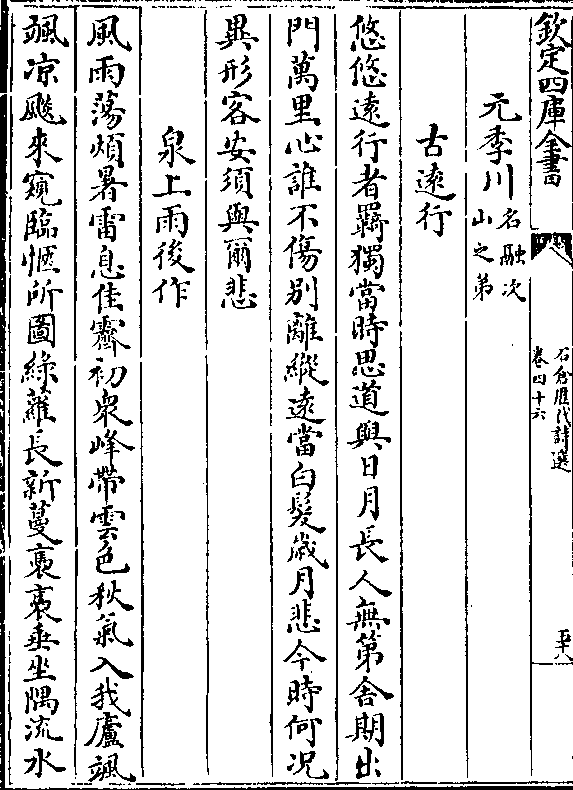 欽定四庫全書
石倉歷代詩選
卷四十六
五十八
元季川名融次山之弟
古遠行
悠悠遠行者羈獨當時思道與日月長人無第舍期出
門萬里心誰不傷別離縱遠當白髮歲月悲今時何况
異形容安須與爾悲
泉上雨後作
風雨蕩煩暑雷息佳霽初衆峰帶雲色秋氣入我廬颯
颯凉飈來窺臨愜所圖綠蘿長新蔓裊裊垂坐隅流水